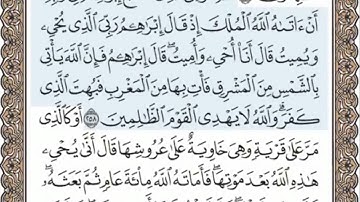 أَنۡ ءَاتَىٰهُ ٱللَّهُ ٱلۡمُلۡكَ إِذۡ قَالَ إِبۡرَٰهِـۧمُ رَبِّيَ ٱلَّذِي يُحۡيِۦ
وَيُمِيتُ قَالَ أَنَا۠ أُحۡيِۦ وَأُمِيتُۖ قَالَ إِبۡرَٰهِـۧمُ فَإِنَّ ٱللَّهَ يَأۡتِي
بِٱلشَّمۡسِ مِنَ ٱلۡمَشۡرِقِ فَأۡتِ بِهَا مِنَ ٱلۡمَغۡرِبِ فَبُهِتَ ٱلَّذِي
كَفَرَۗ وَٱللَّهُ لَا يَهۡدِي ٱلۡقَوۡمَ ٱلظَّٰلِمِينَ ٢٥٨ أَوۡ كَٱلَّذِي
مَرَّ عَلَىٰ قَرۡيَةٖ وَهِيَ خَاوِيَةٌ عَلَىٰ عُرُوشِهَا قَالَ أَنَّىٰ يُحۡيِۦ
هَٰذِهِ ٱللَّهُ بَعۡدَ مَوۡتِهَاۖ فَأَمَاتَهُ ٱللَّهُ مِاْئَةَ عَامٖ ثُمَّ بَعَثَهُۥۖ